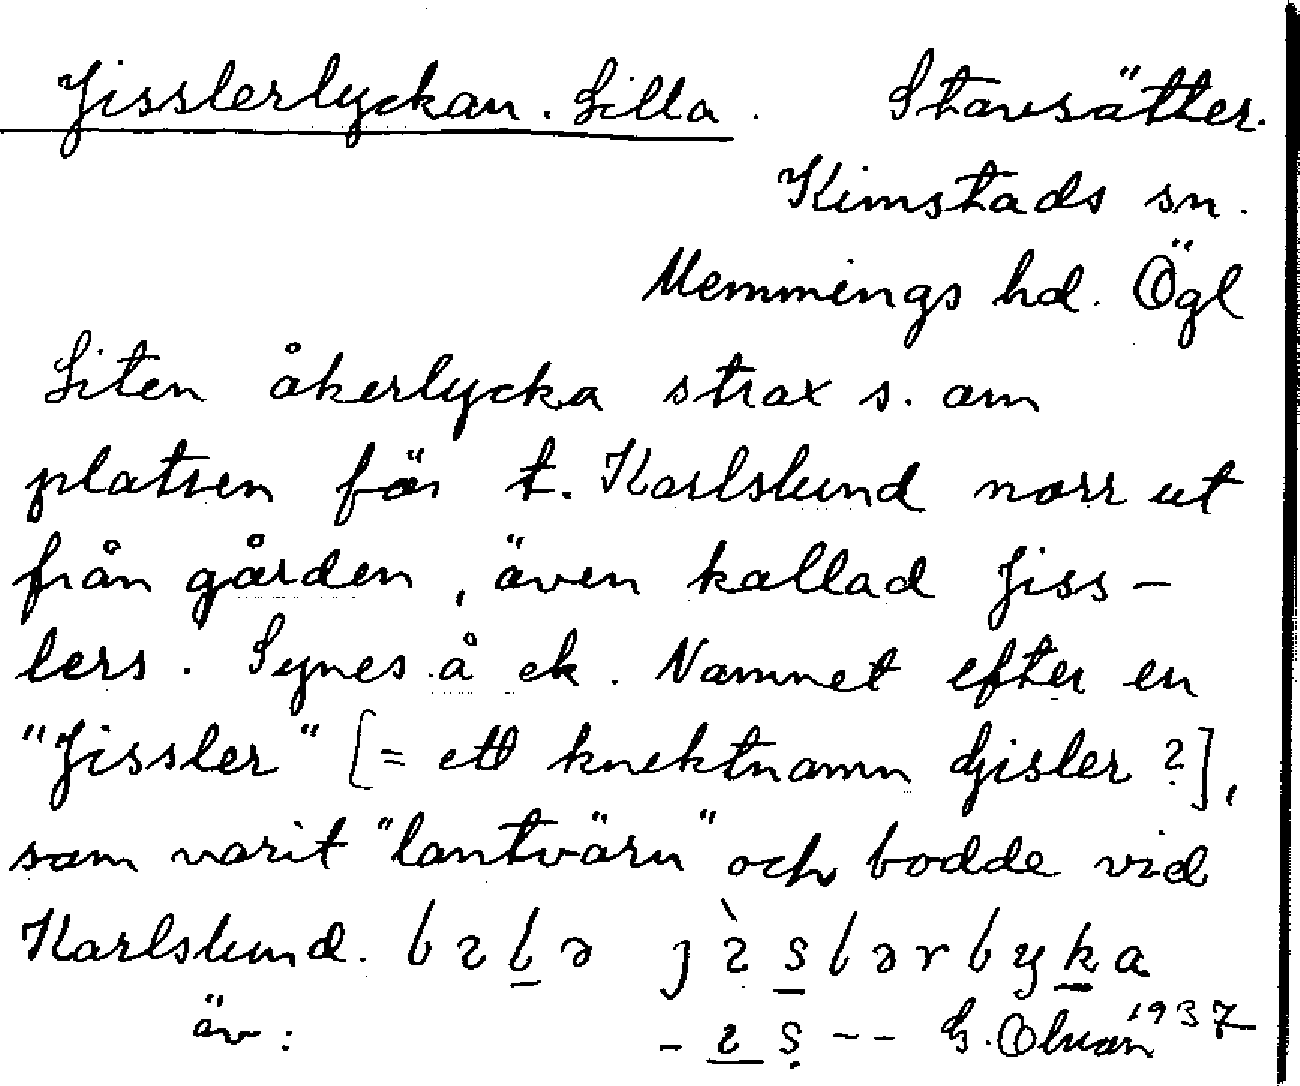 Jisslerlyckan. Lilla. Stavsätter.
Kimstads sn.
Memmings hd. Ögl
Liten åkerlycka strax s. om
platsen för t. Karlslund norr ut
från gården, även kallad Jiss-
lers. Synes å ek. Namnet efter en
"Jissler" [= ett knektnamn Gisler?],
som varit "lantvärn" och bodde vid
Karlslund.
äv:
1937